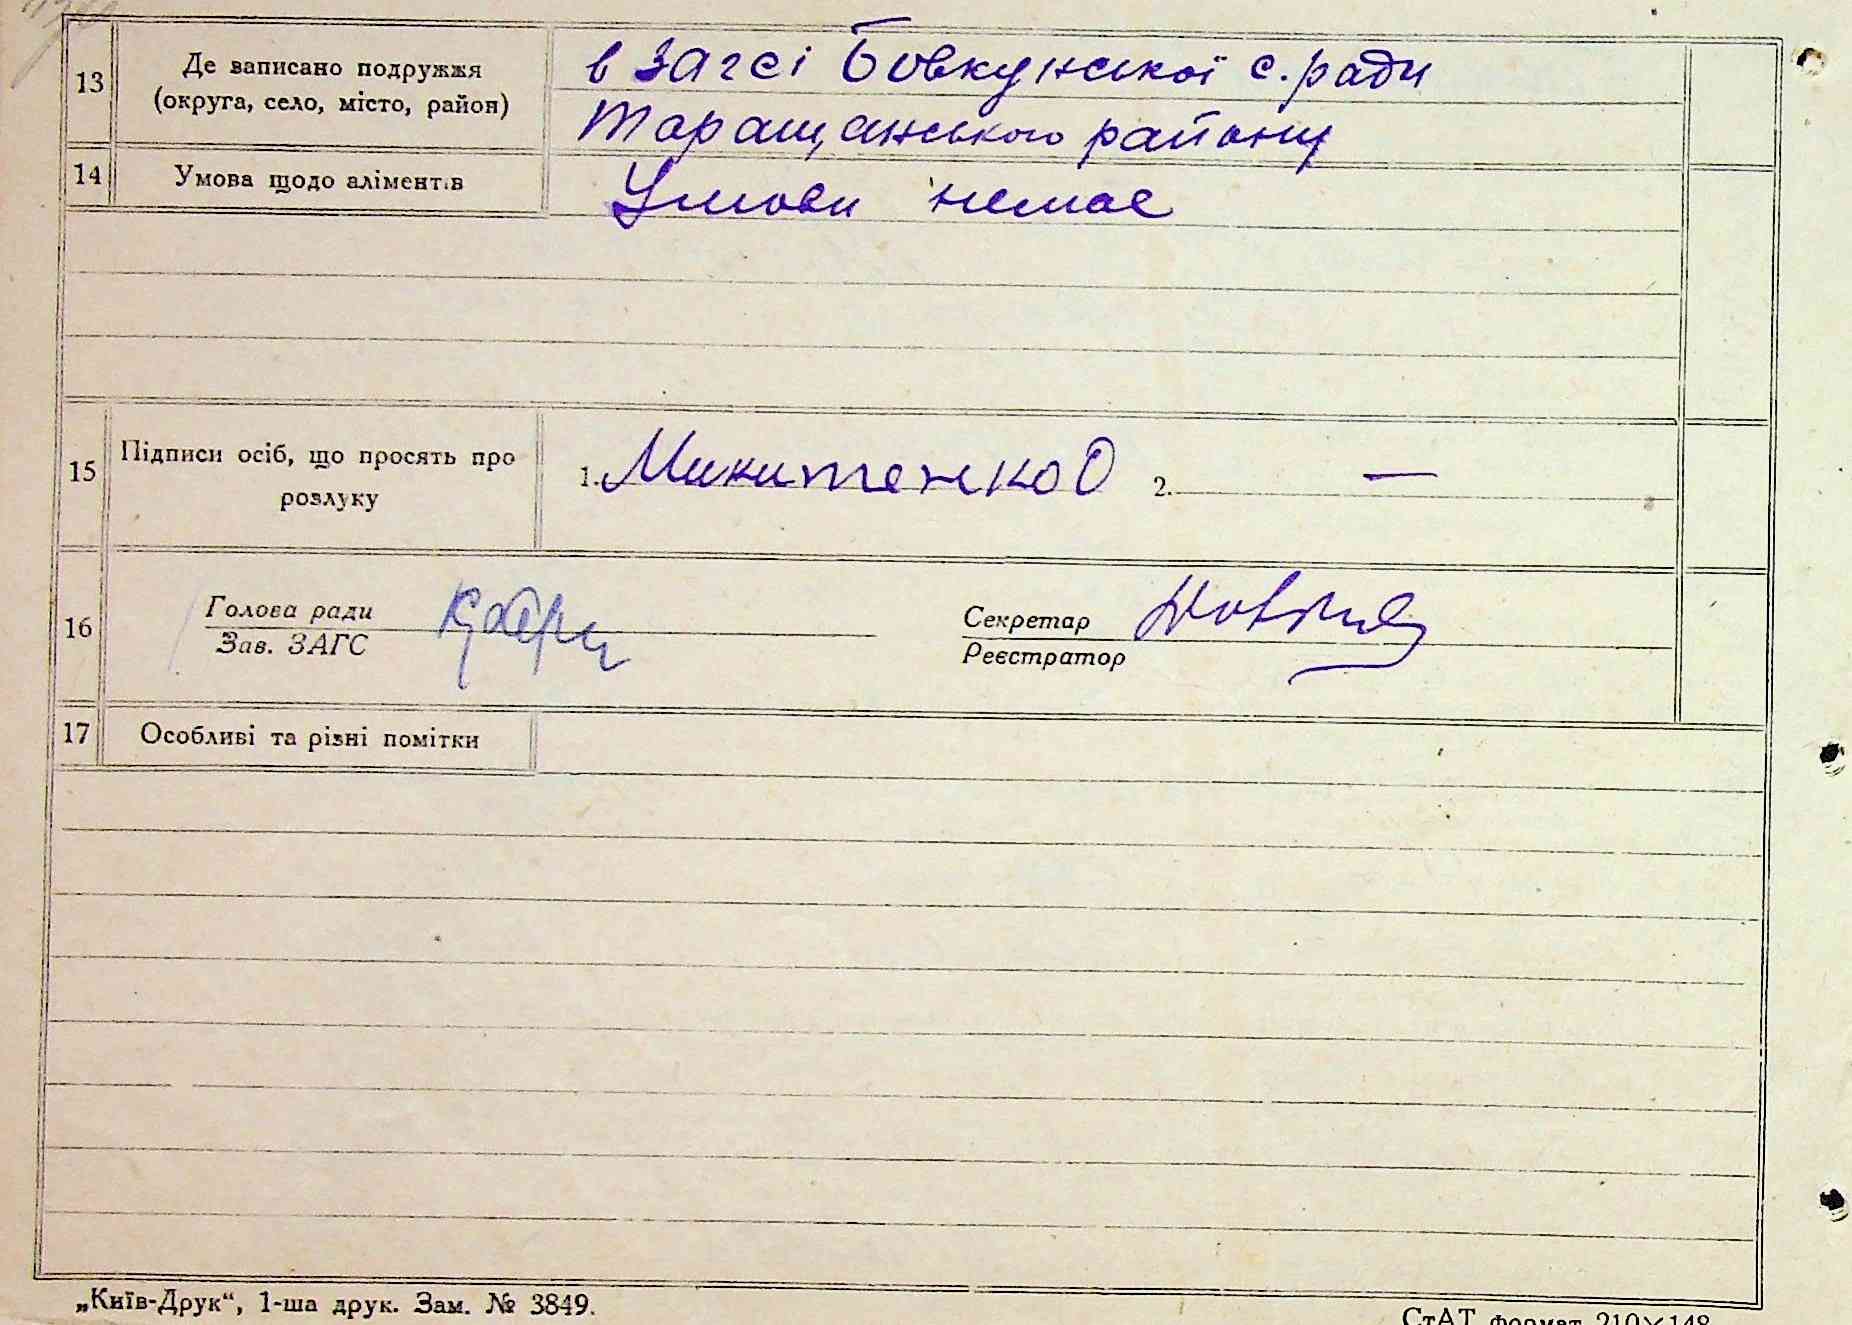 13
Де записано подружжя
(округа, село, місто, район)
в загсі Бовкунської с. ради
Таращанського району
14
Умова щодо аліментів
Умови немає
15
Підписи осіб, що просять про
розлуку
1. Микитенко О 2. —
16
Голова ради
Зав. ЗАГС
Секретар
Реєстратор
17
Особливі та різні помітки
„Київ-Друк“, 1-ша друк. Зам. № 3849.
СтАТ формат 210×148